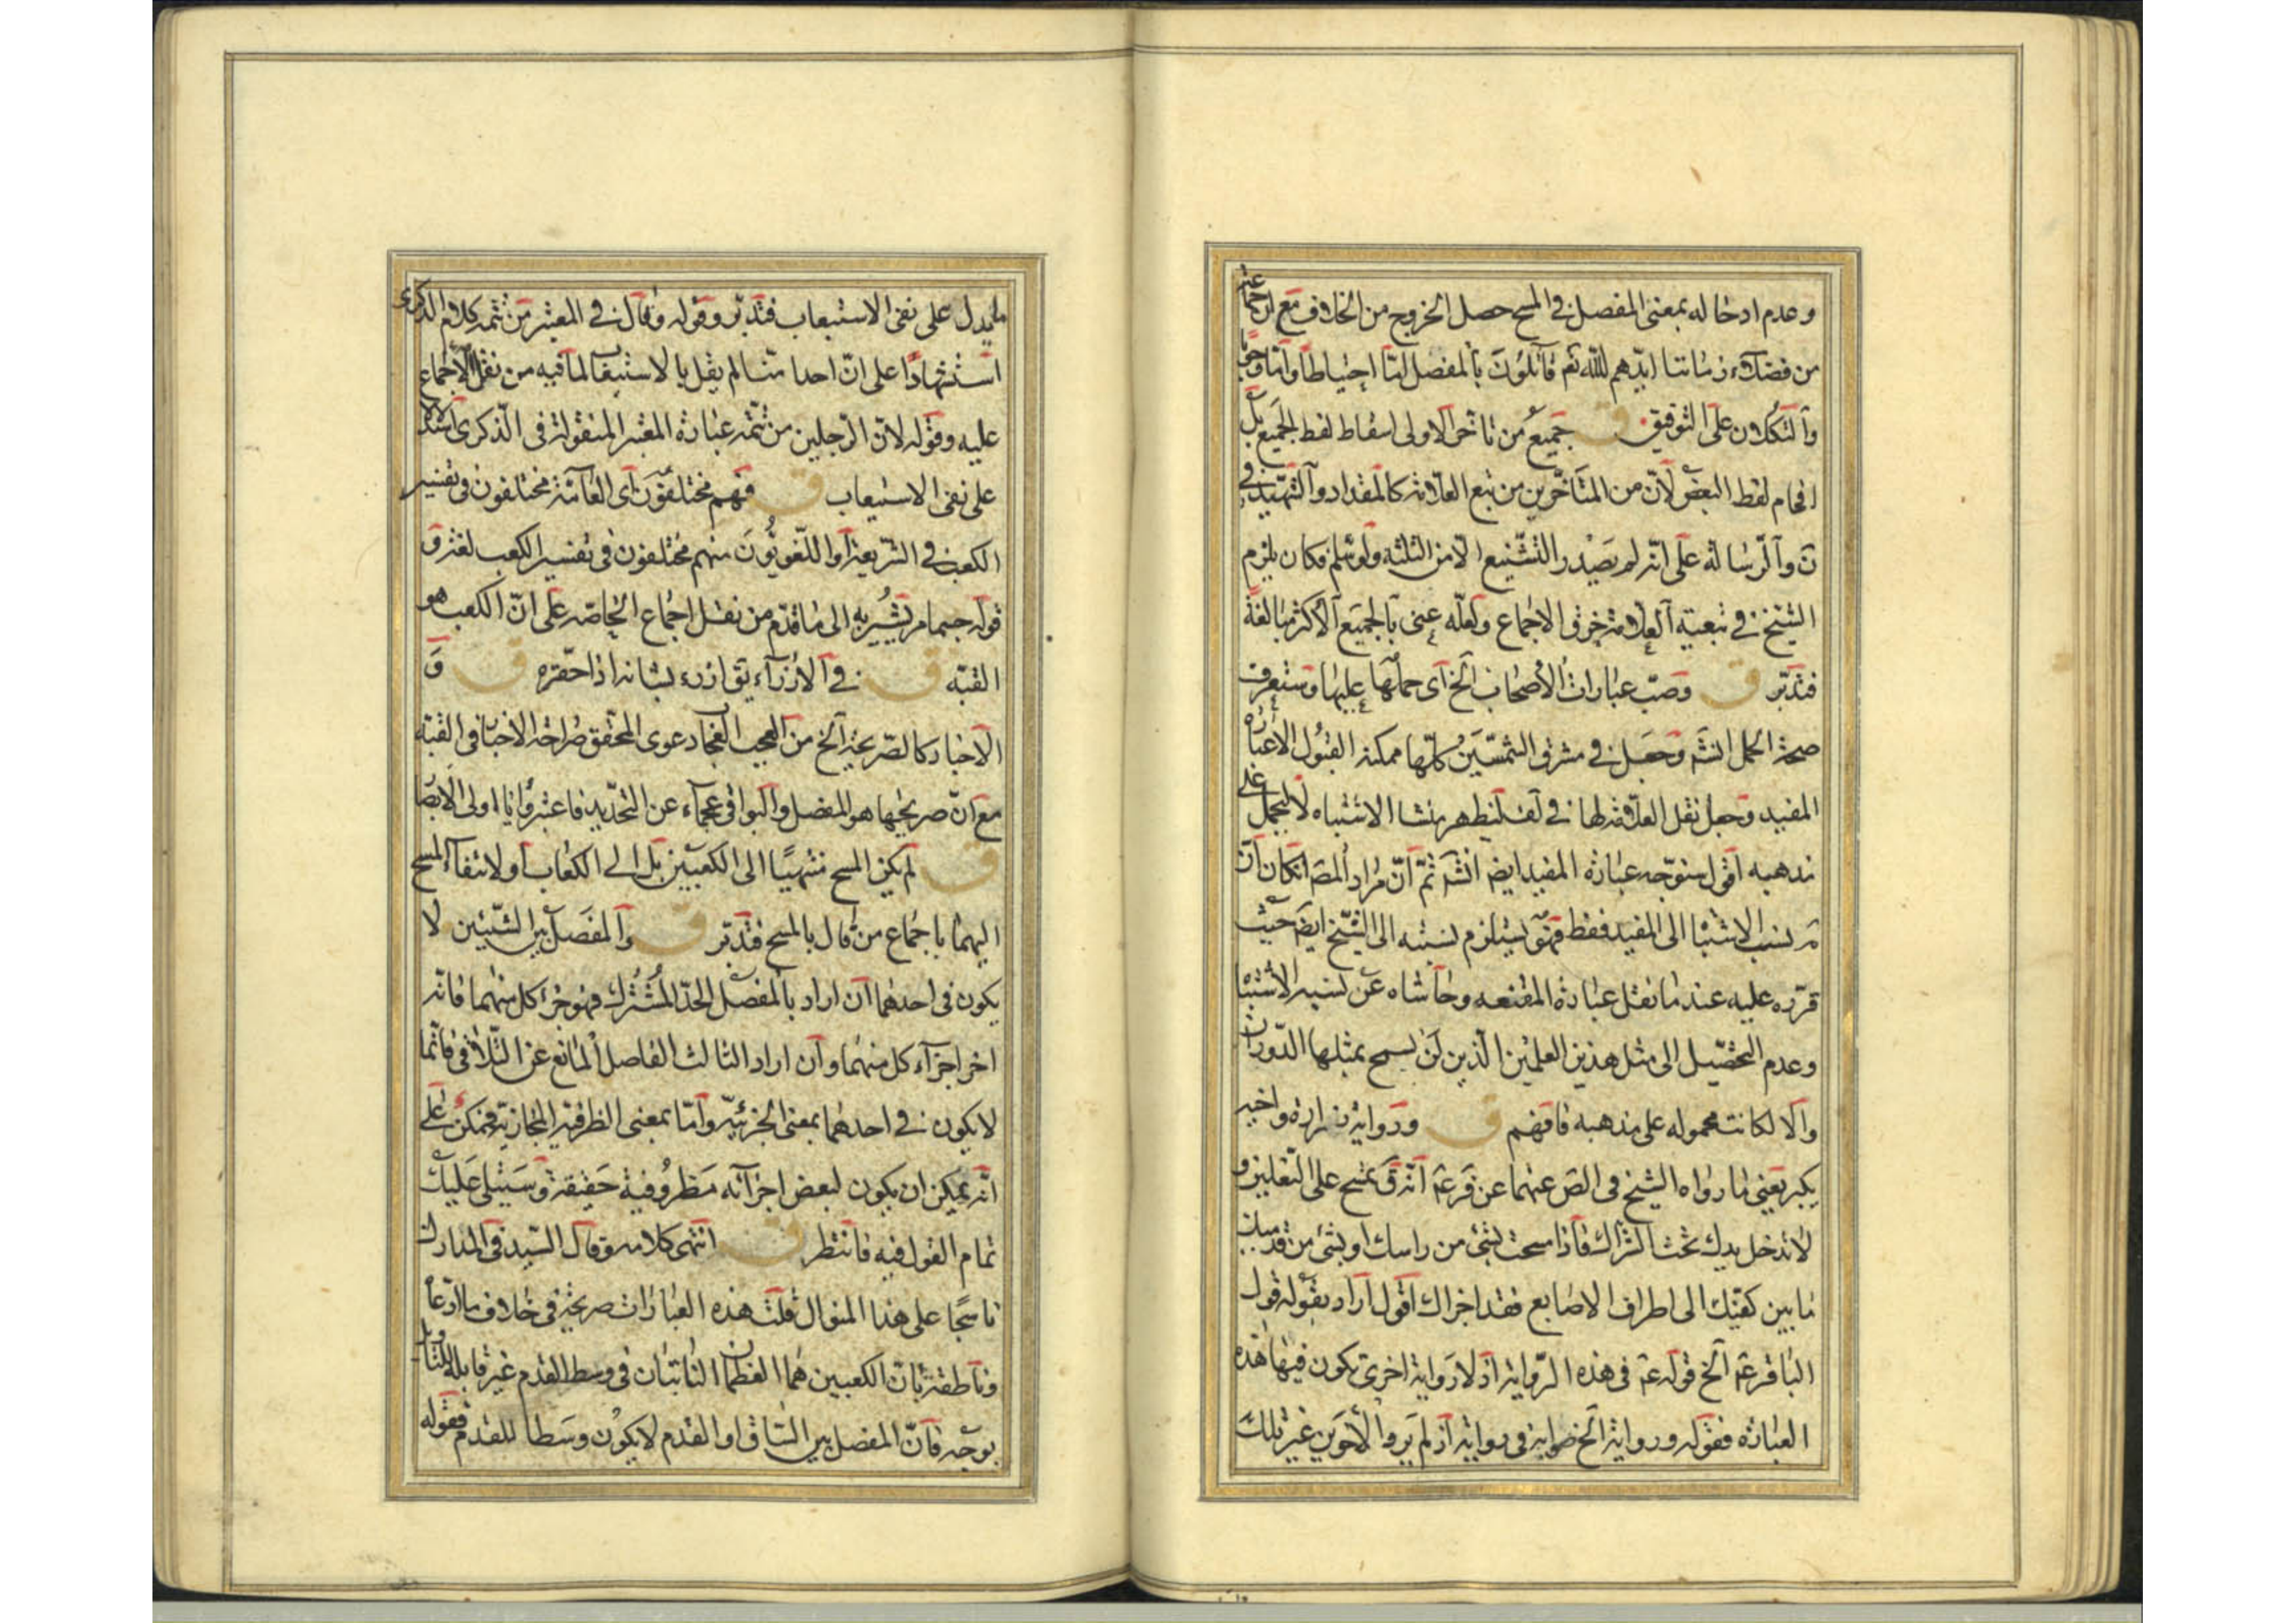 وعدم ادخاله بمعنى المفصل في المسح حصل الخروج من الخلاف مع ان جماعة
من فضلاء زماننا ايدهم الله تع قائلون بالمفصل امّا احتياطا وامّا وجوبا
والتكلان على التوفيق ق جميع من تاخر الاولى اسقاط لفظ الجميع بل
اقحام لفظ البعض لانّ من المتاخّرين من تبع العلامة كالمقداد والشهيد في
ن والرسالة على انّه لم يصدر التشنيع الا من الثلثة ولو سلم فكان يلزم
الشيخ في تبعيته العلامة خرق الاجماع ولعلّه عنى بالجميع الاكثر مبالغة
فتدبّر ق وصبّ عبارات الاصحاب الخ اى حملها عليها وستعرف
صحة الحمل انشه وجعل في مشرق الشمسين كلّها ممكنة القبول الا عبارة
المفيد وجعل نقل العلامة لها في لف ليظهر منشا الاشتباه لا ليحمل على
مذهبه اقول سنوجّه عبارة المفيد ايض انشه ثمّ انّ مراد المص ان كان انّ
مه نسب الاشتباه الى المفيد فقط فهو يستلزم نسبته الى الشيخ ايض حيث
قرّره عليه عند ما نقل عبارة المقنعه وحاشاه عن نسبة الاشتباه
وعدم التحصيل الى مثل هذين العلمين الّذين لن يسمح بمثلها الدّوران
والا لكانت محمولة على مذهبه فافهم ق ورواية زرارة واخيه
بكير يعنى ما رواه الشيخ في الص عنهما عن قر عه انّه ق تمسح على النعلين و
لا تدخل يدك تحت الشراك فاذا مسحت بشئ من راسك او بشئ من قدميك
ما بين كعبيك الى اطراف الاصابع فقد اجزاك اقول اراد بقوله قول
الباقر عه الخ قوله عه في هذه الرّواية اذ لا رواية اخرى يكون فيها هذه
العبارة فقوله ورواية الخ صوابه في رواية اذ لم يرو الاخوين غير تلك
ما يدل على نفى الاستيعاب فتدبّر وقوله وقال في المعتبر من تتمة كلام الذكرى
استشهادًا على انّ احدا منا لم يقل بالاستيعاب لما فيه من نقل الاجماع
عليه وقوله لانّ الرجلين من تتمّة عبارة المعتبر المنقولة في الذكرى استدلالا
على نفى الاستيعاب ق فهم مختلفون اى العامّة مختلفون في تفسير
الكعب في الشريعة او اللغويّون منهم مختلفون في تفسير الكعب لغة ق
قوله حسما مر يشير به الى ما قدّم من نقل اجماع الخاصّه على انّ الكعب هو
القبّه ق في الازراء يق ازرى بشانه اذا حقّره ق و
الاخبار كالصّريحة الخ من العجب العجاب دعوى المحقق صراحة الاخبار في القبّة
مع انّ صريحها هو المفصل والبواقى عجماء عن التحديد فاعتبروا يا اولى الابصار
ق لم يكن المسح منتهيًا الى الكعبين بل الى الكعاب او لانتفاء المسح
اليهما باجماع من قال بالمسح فتدبّر ق والمفصل بين الشيئين لا
يكون في احدهما ان اراد بالمفصل الحدّ المشترك فهو جزء كل منهما فانّه
اخر اجزاء كل منهما وان اراد الثالث الفاصل المانع عن التلاقى فانّما
لا يكون في احدهما بمعنى الجزئيّة وامّا بمعنى الظرفية المجازيّة فممكن على
انّه يمكن ان يكون لبعض اجزائه مظروفية حقيقة وسيتلى عليك
تمام القول فيه فانتظر ق انتهى كلامه وقال السيّد في المدارك
ناسجًا على هذا المنوال قلت هذه العبارات صريحة في خلاف ما ادّعاه
وناطقة بانّ الكعبين هما العظمان الناتيان في وسط القدم غير قابلة للتاويل
بوجه فانّ المفصل بين الساق والقدم لا يكون وسطا للقدم فقوله